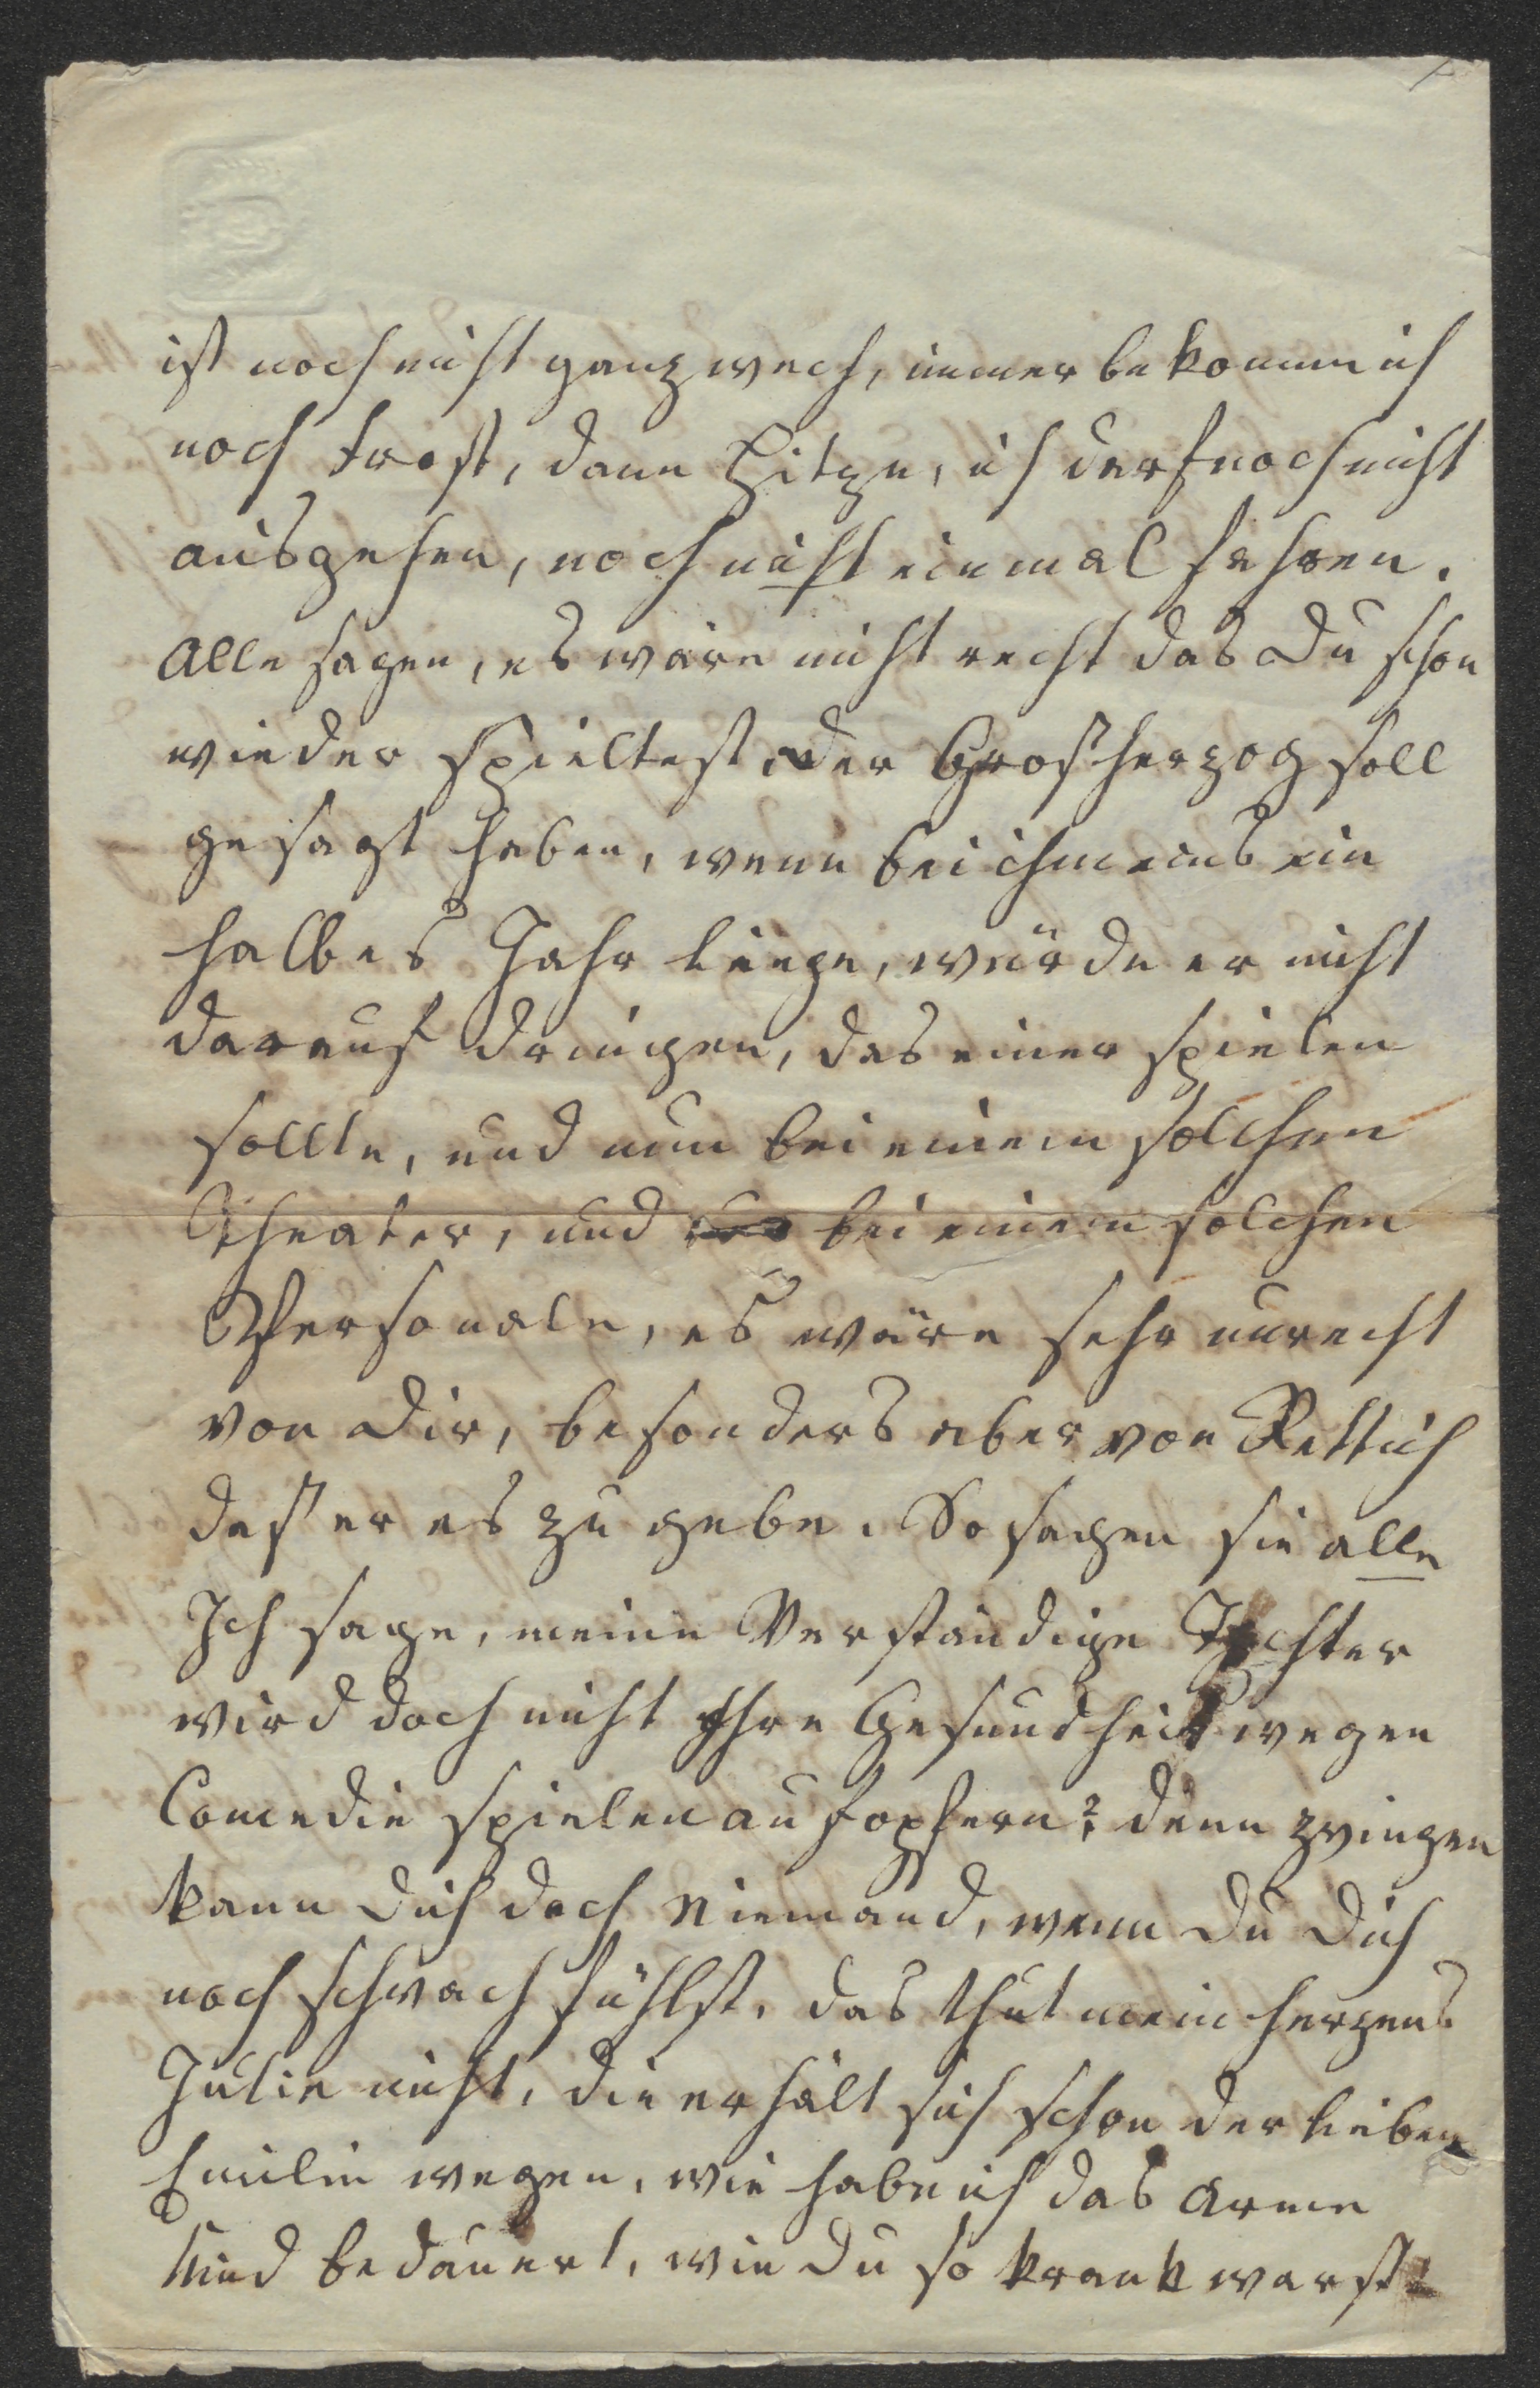 ist noch nicht ganz wech, immer bekomm ich
noch Frost, dann Hitze, ich derf noch nicht
ausgehen, noch nicht einmal fahren.
Alle sagen, es wäre nicht recht das Du schon
wieder spieltest, der Großherzog soll
gesagt haben, wenn bei ihm eins ein
halbes Jahr liege, würde er nicht
darauf dringen, das einer spielen
sollte, und nun bei einem solchen
Theater, und bei einem solchen
Personale, es wäre sehr unrecht
von Dir, besonders aber von Rettich
daß er es zu gebe. So sagen sie alle
Ich sage, meine Verständige Tochter
wird doch nicht Ihre Gesundheit wegen
Comedie spielen aufopfern? denn zwingen
kann Dich doch Niemand, wenn Du Dich
noch schwach fühlst. das thut mein herzens
Julie nicht, die erhält sich schon der lieben
Emilie wegen, wie habe ich das arme
Kind bedauert, wie Du so krank warst